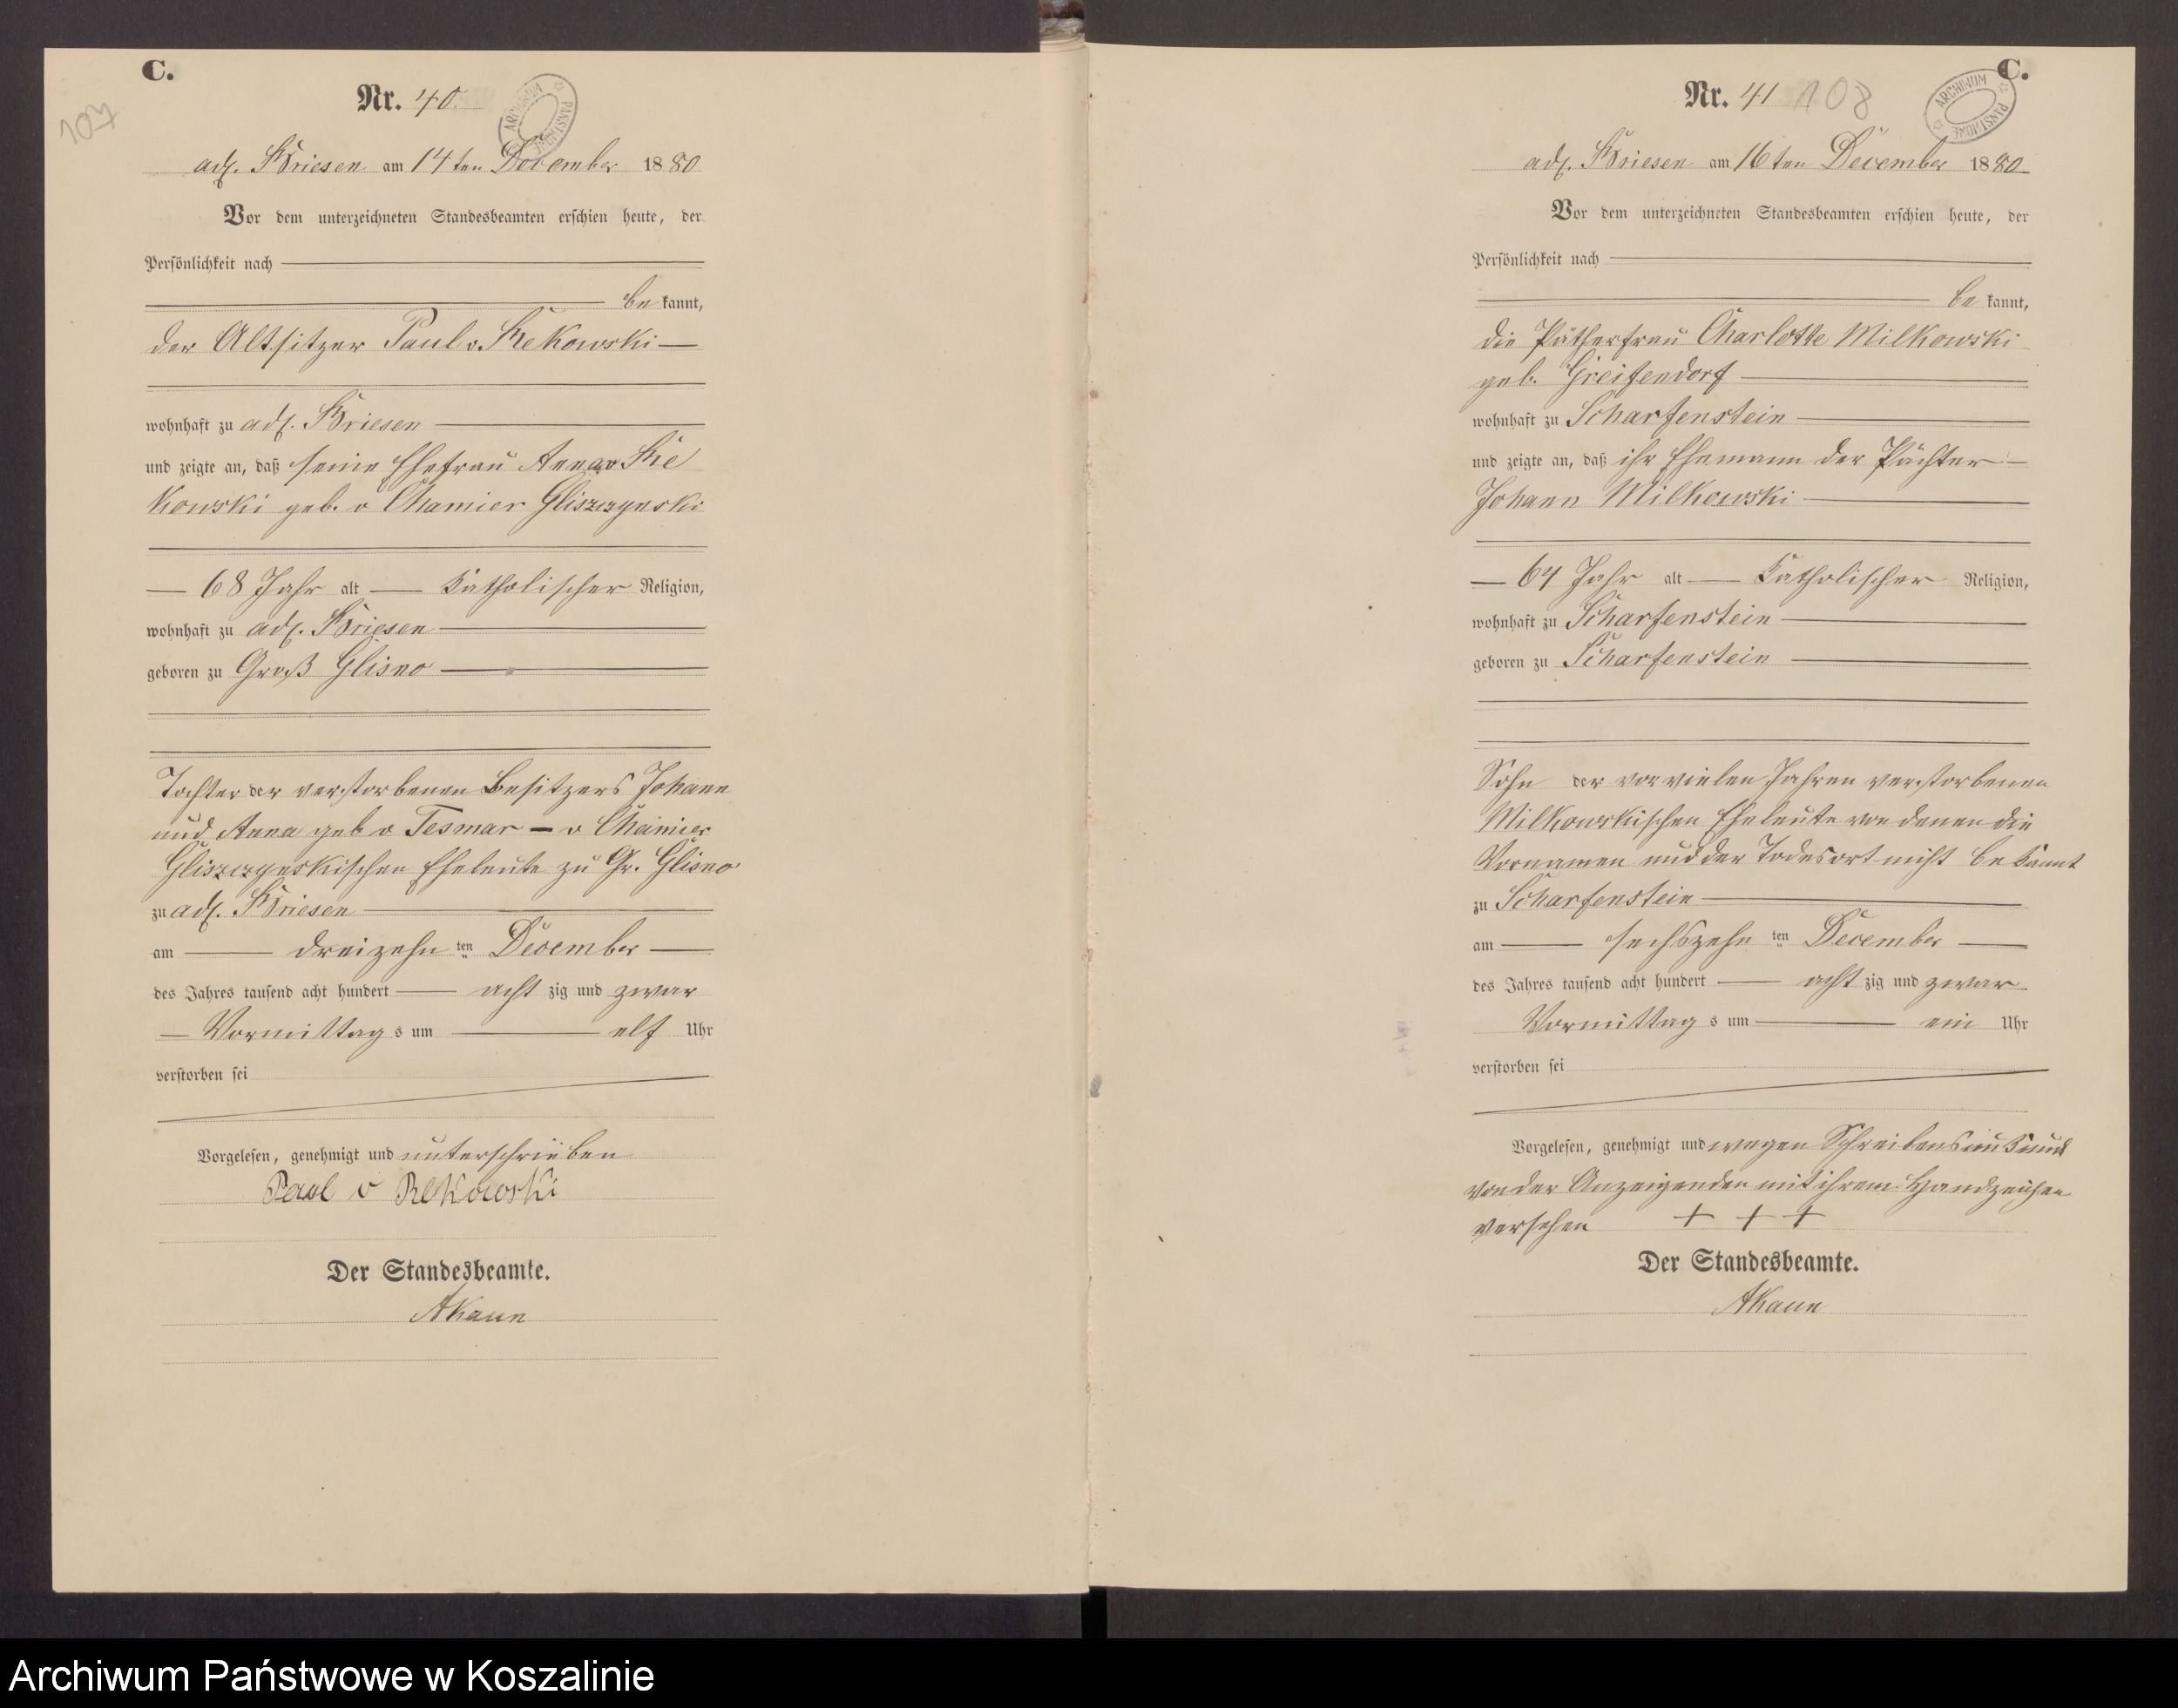 C.
107
Nr. 40.
adl. Briesen am 14ten December 1880
Vor dem unterzeichneten Standesbeamten erschien heute, der
Persönlichkeit nach
be kannt,
der Altsitzer Paul v. Rekowski
wohnhaft zu adl. Briesen
und zeigte an, daß seine Ehefrau Anna v Re
kowski geb. v Chamier Gliszczynski
68 Jahr alt katholischer Religion,
wohnhaft zu adl. Briesen
geboren zu Groß Glisno
Tochter der verstorbenen Besitzers Johann
und Anna geb v Tesmar - v Chamier
Gliszczynskischen Eheleute zu Gr. Glisno
zu adl. Briesen
am dreizehn ten December
des Jahres tausend acht hundert acht zig und zwar
Vormittag s um elf Uhr
verstorben sei
Vorgelesen, genehmigt und unterschrieben
Paul v Rekowski
Der Standesbeamte.
AKaun
C.
Nr. 41
108
ARCHIWUM PAŃSTWOWE
adl. Briesen am 16ten December 1880
Vor dem unterzeichneten Standesbeamten erschien heute, der
Persönlichkeit nach
be kannt,
die Pächterfrau Charlotte Milkowski
geb. Greifendorf
wohnhaft zu Scharfenstein
und zeigte an, daß ihr Ehemann der Pächter
Johann Milkowski
64 Jahr alt katholischer Religion,
wohnhaft zu Scharfenstein
geboren zu Scharfenstein
Sohn der vor vielen Jahren verstorbenen
Milkowskischen Eheleute von denen die
Vornamen und der Todesort nicht bekannt
zu Scharfenstein
am sechszehn ten December
des Jahres tausend acht hundert acht zig und zwar
Vormittag s um ein Uhr
verstorben sei
Vorgelesen, genehmigt und wegen Schreibensunkund
von der Anzeigenden mit ihrem Handzeichen
versehen + + +
Der Standesbeamte.
AKaun
Archiwum Państwowe w Koszalinie